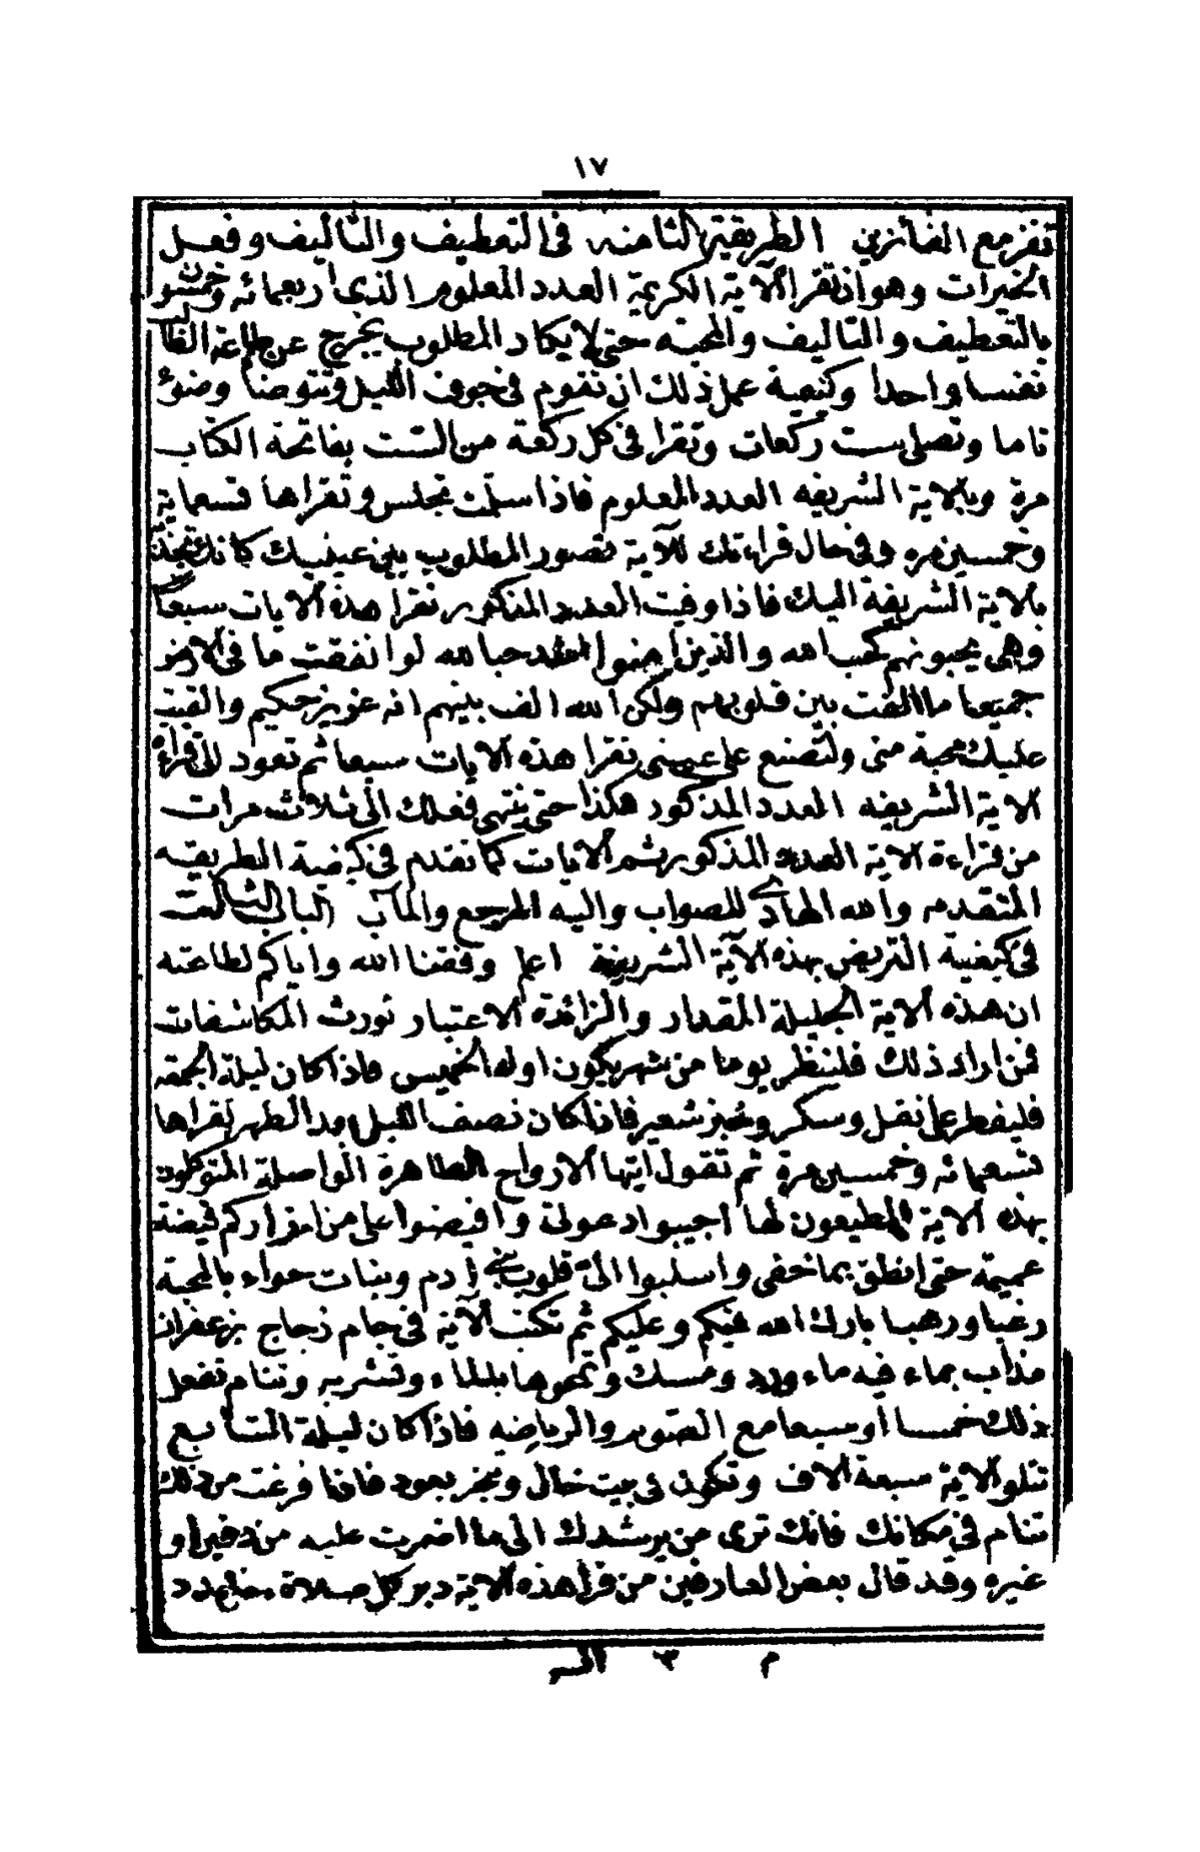 ١٧
تفز مع الفائزين الطريقة الثامنه فى التعطيف والتأليف وفعل
الخيرات وهو ان تقرا الآية الكريمة العدد المعلوم الذى اربعمائه وخمسو
بالتعطيف والتاليف والمحبه حتى لا يكاد المطلوب يخرج عن طاعة الطالب
نفسا واحدا وكيفية عمل ذلك ان تقوم فى جوف الليل وتتوضأ وضوء
تاما وتصلى ست ركعات وتقرا فى كل ركعة من الست بفاتحة الكتاب
مرة وبالاية الشريفه العدد المعلوم فاذا سلمت تجلس وتقراها تسعماية
وخمسين مره وفى حال قراءتك للآية تصور المطلوب بين عينيك كانك تجذبه
بالاية الشريفة اليك فاذا وفيت العدد المذكور تقرا هذه الايات سبعا
وهى يحبونهم كحب الله والذين امنوا اشد حبا لله لو انفقت ما فى الارض
جميعا ما الفت بين قلوبهم ولكن الله الف بينهم انه عزيز حكيم والقيت
عليك محبة منى ولتصنع على عينى تقرا هذه الايات سبعا ثم تعود الى قراءة
الاية الشريفه العدد المذكور هكذا حتى ينتهى فعلك الى ثلاث مرات
من قراءة الاية العدد المذكور ثم الايات كما تقدم فى كيفية الطريقه
المتقدم والله الهادى للصواب واليه المرجع والمآب الباب الثالث
فى كيفية التريض بهذه الآية الشريفة اعلم وفقنا الله واياكم لطاعته
ان هذه الاية الجليلة المقدار والزائدة الاعتبار تورث المكاشفات
فمن اراد ذلك فلينظر يوما من شهر يكون اوله الخميس فاذا كان ليلة الجمعة
فليفطر على نقل وسكر وخبز شعير فاذا كان نصف الليل وبدا لطهر تقراها
تسعمائه وخمسين مرة ثم تقول ايتها الارواح الطاهرة الواصلة المتوكلون
بهذه الاية المطيعون لها اجيبوا دعوتى وافيضوا على من اسراركم فيضة
عميمة حتى انطق بما خفى واسلبوا الى قلوب بنى ادم وبنات حواء بالمحبة
رغبا ورهبا بارك الله فيكم وعليكم ثم تكتب الآية فى جام زجاج بزعفران
مذاب بماء فيه ماء ورد ومسك وتمحوها بالماء وتشربه وتنام تفعل
ذلك خمسا او سبعا مع الصوم والرياضه فاذا كان ليلة السابع
تتلو الاية سبعة الاف وتكون فى بيت خال وتبخر بعود فاذا فرغت من ذلك
تنام فى مكانك فانك ترى من يرشدك الى ما اضمرت عليه من دفين او
غيره وقد قال بعض العارفين من قرأ هذه الاية دبر كل صلاة بعدد
م ٣ السر